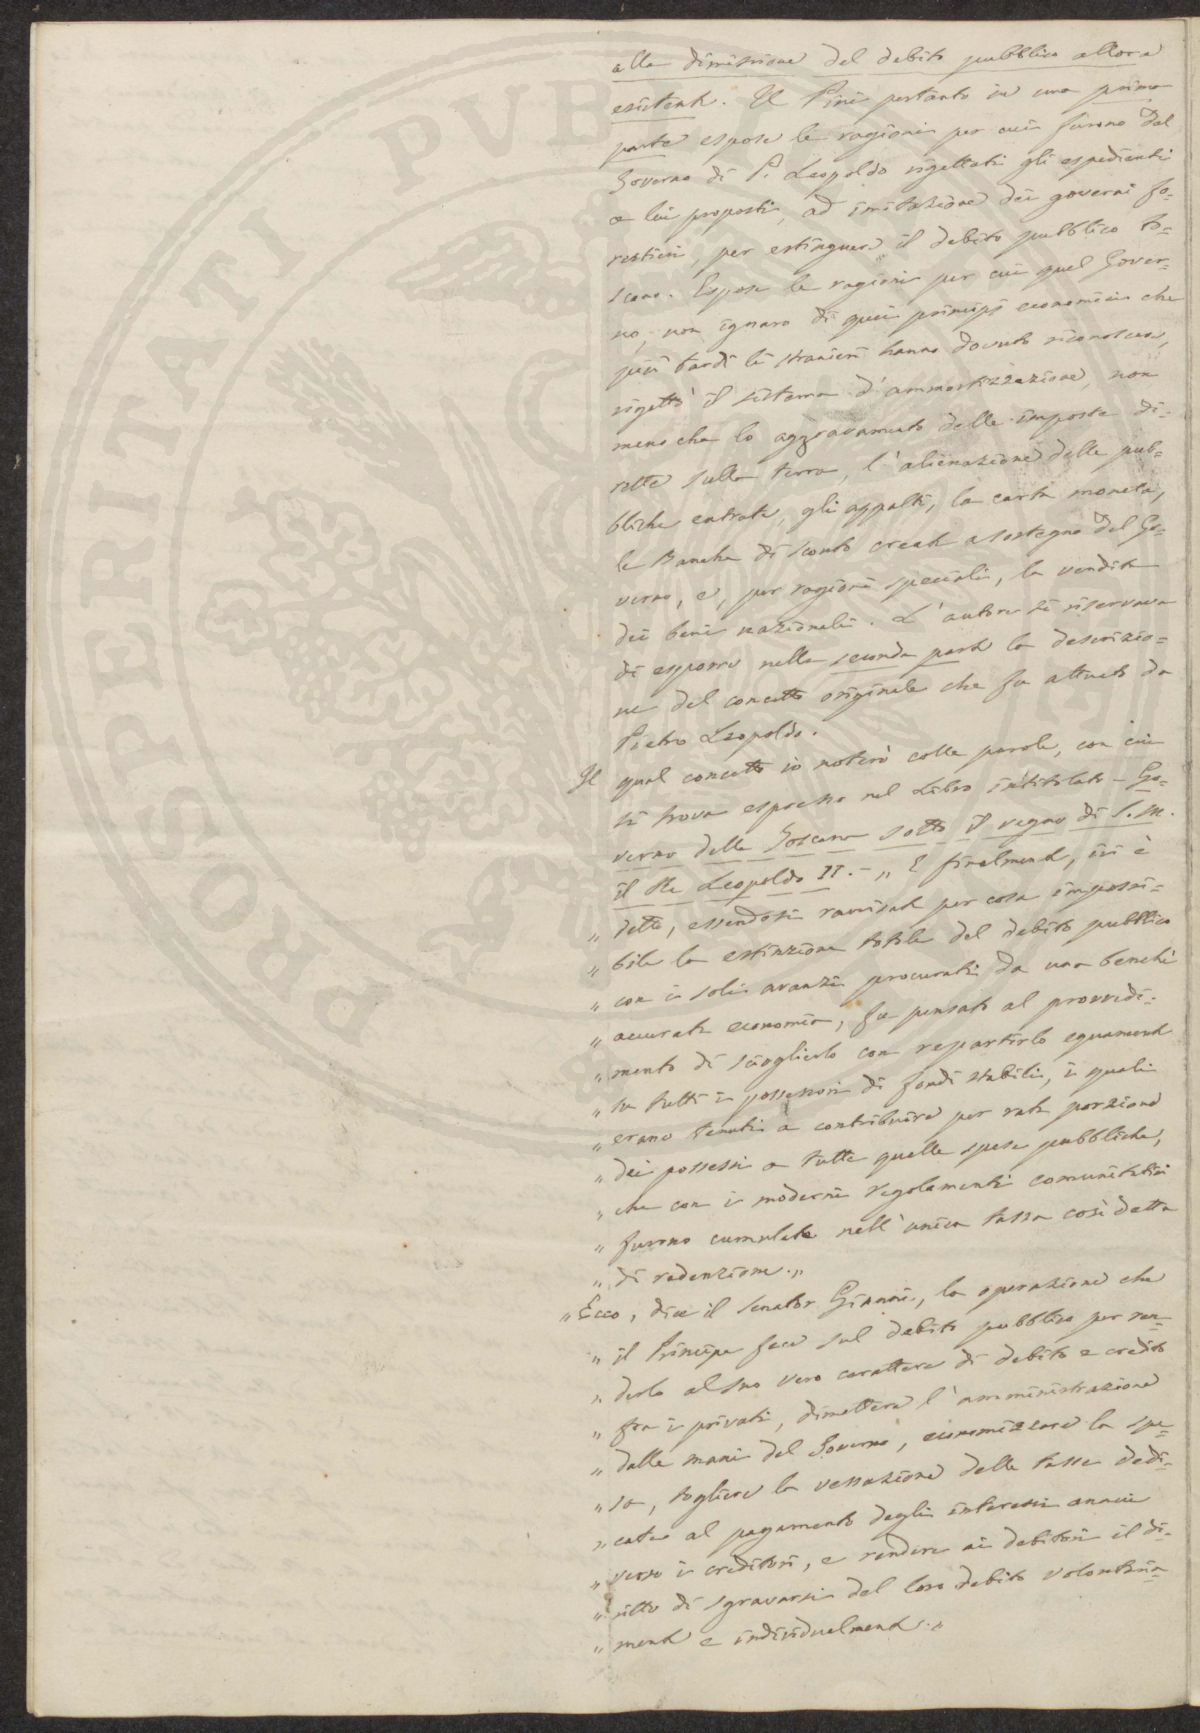 alla dimissione del debito pubblico allora
esistente. Il Pini pertanto in una prima
parte espose le ragioni per cui furono dal
Governo di P. Leopoldo rigettati gli espedienti
a lui proposti, ad imitazione dei governi fo-
restieri, per estinguere il debito pubblico to-
scano. Espose le ragioni per cui quel Gover-
no, non ignaro di quei principj economici che
più tardi li stranieri hanno dovuto riconoscere,
rigettò il sistema d'ammortizzazione, non
meno che lo aggravamento delle imposte di-
rette sulla terra, l'alienazione delle pub-
bliche entrate, gli appalti, la carta moneta,
le Banche di sconto create a sostegno del Go-
verno, e, per ragioni speciali, la vendita
dei beni nazionali. L'autore si riservava
di esporre nella seconda parte la descrizio-
ne del concetto originale che fu attuato da
Pietro Leopoldo.
Il qual concetto io noterò colle parole, con cui
si trova espresso nel Libro intitolato - Go-
verno della Toscana sotto il regno di S. M.
il Re Leopoldo II. - „ E finalmente, ivi è
„ detto, essendosi ravvisata per cosa impossi-
„ bile la estinzione totale del debito pubblico
„ con i soli avanzi procurati da una benchè
„ accurata economia, fu pensato al provvedi-
„ mento di scioglierlo con repartirlo equamente
„ su tutti i possessori di fondi stabili, i quali
„ erano tenuti a contribuire per rata porzione
„ dei possessi a tutte quelle spese pubbliche,
„ che con i moderni regolamenti comunitativi
„ furono cumulate nell'unica tassa così detta
„ di redenzione. „
„ Ecco, dice il Senator Gianni, la operazione che
„ il Principe fece sul debito pubblico per ren-
„ derlo al suo vero carattere di debito e credito
„ fra i privati, dimettere l'amministrazione
„ dalle mani del Governo, economizzare la spe-
„ sa, togliere la vessazione delle tasse dedi-
„ cate al pagamento degli interessi annui
„ verso i creditori, e rendere ai debitori il di-
„ ritto di sgravarsi del loro debito volontaria-
„ mente e individualmente. „